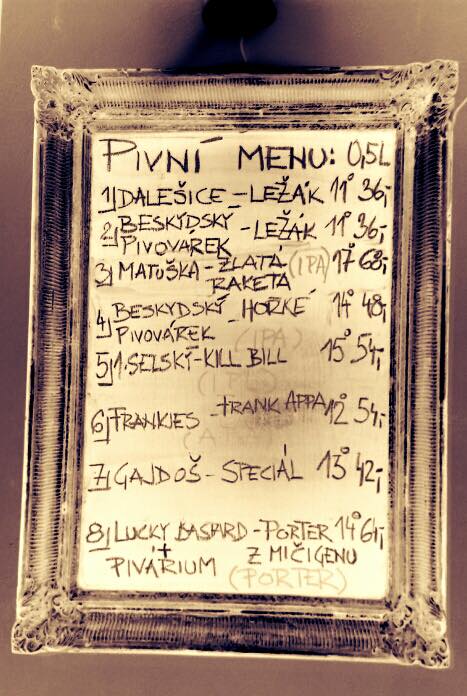 PIVNÍ MENU: 0,5L
1) DALEŠICE - LEŽÁK 11° 36,-
2) BESKYDSKÝ PIVOVÁREK - LEŽÁK 11° 36,-
3) MATUŠKA - ZLATÁ RAKETA (IPA) 17° 68,-
4) BESKYDSKÝ PIVOVÁREK HOŘKÉ 14° 48,-
(IPA)
5) 1. SELSKÝ - KILL BILL 15° 54,-
6) FRANKIES - FRANK APPA 12° 54,-
7) GAJDOŠ - SPECIÁL 13° 42,-
8) LUCKY BASPARD - PORTER 14° 64,-
+ PIVÁRIUM Z MIČIGENU
(PORTER)